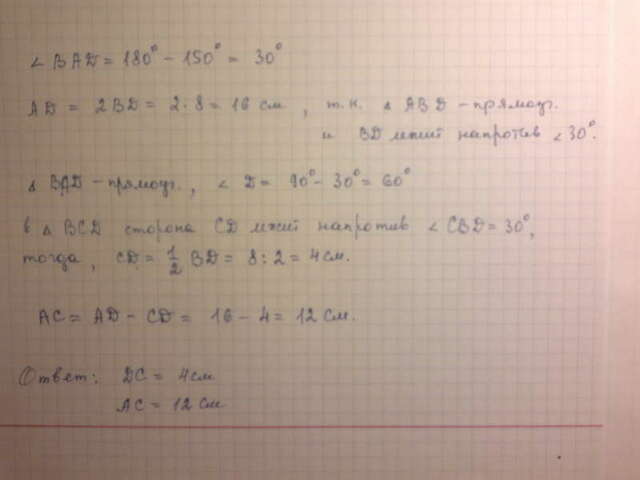 ∠ BAD = 180° - 150° = 30°
AD = 2BD = 2·8 = 16 см, т.к. △ ABD - прямоуг.
и BD лежит напротив ∠30°.
△ BAD - прямоуг., ∠ D = 90° - 30° = 60°
в △ BCD сторона CD лежит напротив ∠ CBD = 30°,
тогда, CD = 1/2 BD = 8 : 2 = 4 см.
AC = AD - CD = 16 - 4 = 12 см.
Ответ: DC = 4 см
AC = 12 см